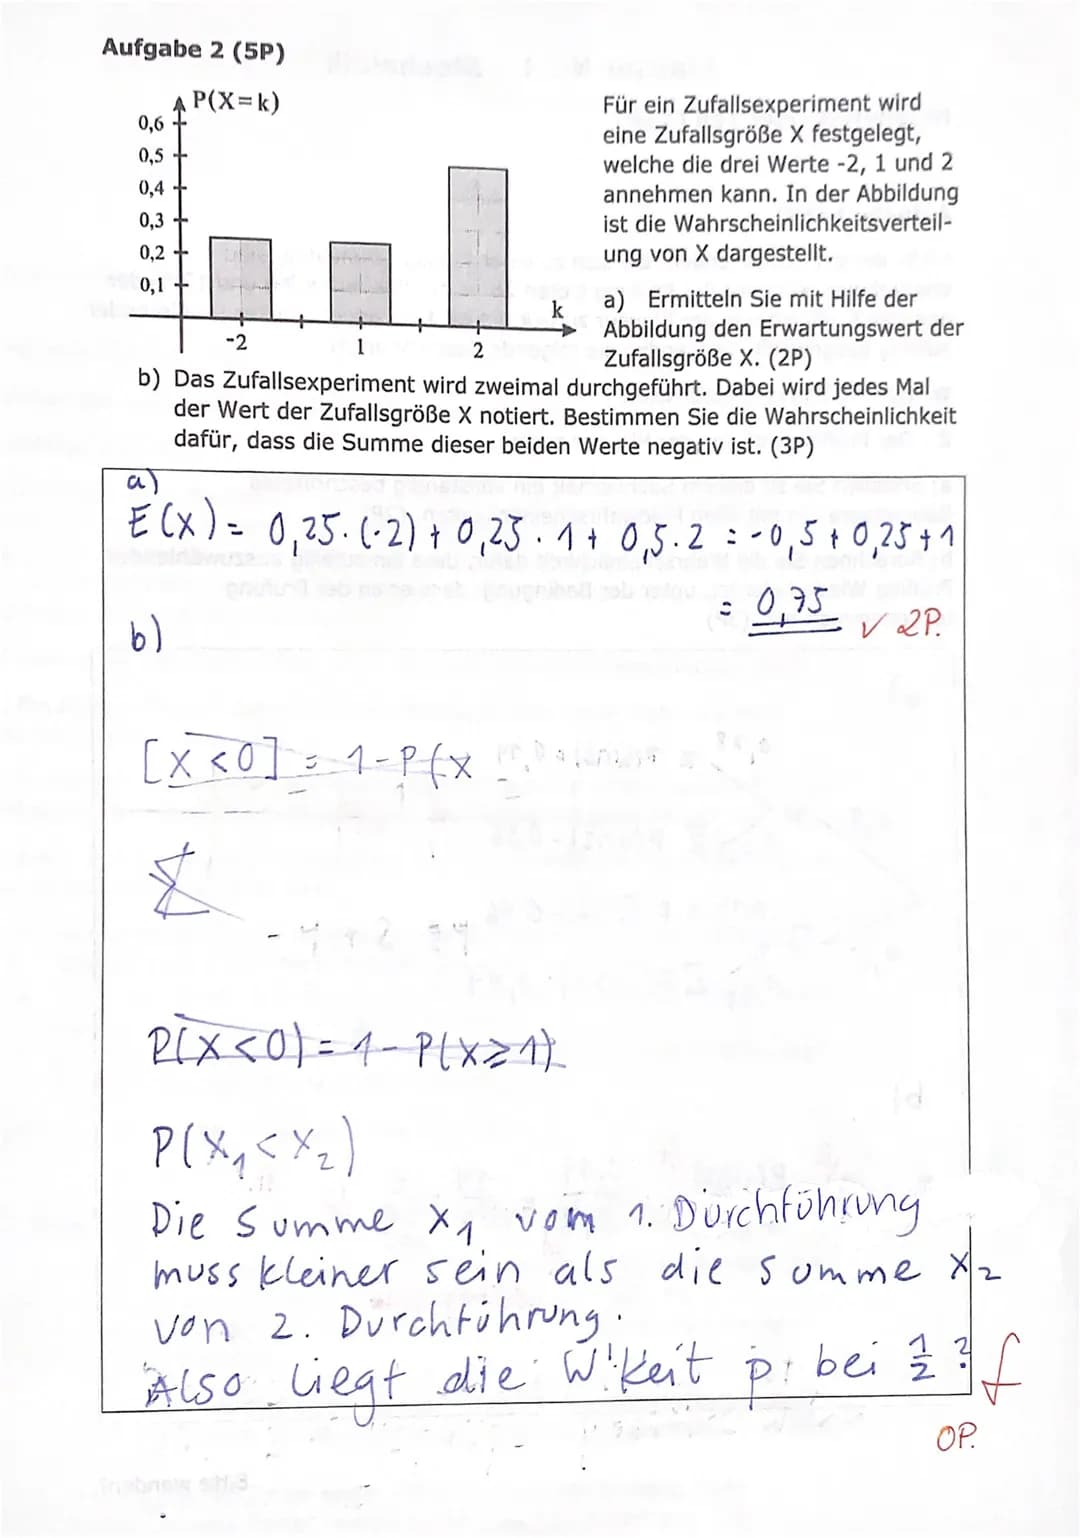 Aufgabe 2 (5P)
P(X=k)
0,6
0,5
0,4
0,3
0,2
0,1
-2
1
2
k
Für ein Zufallsexperiment wird
eine Zufallsgröße X festgelegt,
welche die drei Werte -2, 1 und 2
annehmen kann. In der Abbildung
ist die Wahrscheinlichkeitsverteil-
ung von X dargestellt.
a) Ermitteln Sie mit Hilfe der
Abbildung den Erwartungswert der
Zufallsgröße X. (2P)
b) Das Zufallsexperiment wird zweimal durchgeführt. Dabei wird jedes Mal
der Wert der Zufallsgröße X notiert. Bestimmen Sie die Wahrscheinlichkeit
dafür, dass die Summe dieser beiden Werte negativ ist. (3P)
a)
E(X) = 0,25·(-2) + 0,25·1 + 0,5·2 = -0,5 + 0,25 + 1
= 0,75
✓ 2P.
b)
[X<0] = 1-P(X
Σ
P(X<0) = 1-P(X≥1)
P(X₁<X₂)
Die Summe X₁ vom 1. Durchführung
muss kleiner sein als die Summe X₂
von 2. Durchführung.
Also liegt die W'keit p bei 1/2 ?
f
0P.